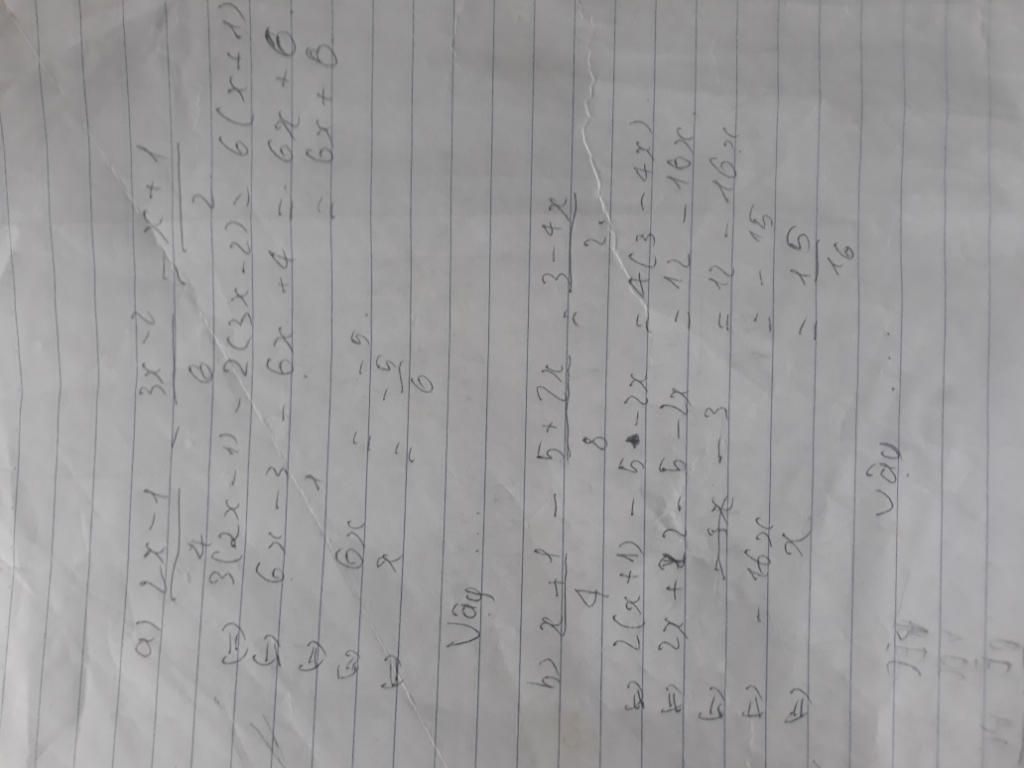 a) 2x - 1 / 4 - 3x - 2 / 6 = x + 1 / 2
⇔ 3(2x - 1) - 2(3x - 2) = 6(x + 1)
⇔ 6x - 3 - 6x + 4 = 6x + 6
⇔ 1 = 6x + 6
⇔ 6x = - 5
⇔ x = -5/6
Vậy ...
b) x + 1 / 4 - 5 + 2x / 8 = 3 - 4x / 2
⇔ 2(x + 1) - 5 - 2x = 4(3 - 4x)
⇔ 2x + 2 - 5 - 2x = 12 - 16x
⇔ - 3 = 12 - 16x
⇔ - 16x = - 15
⇔ x = 15/16
Vậy ...